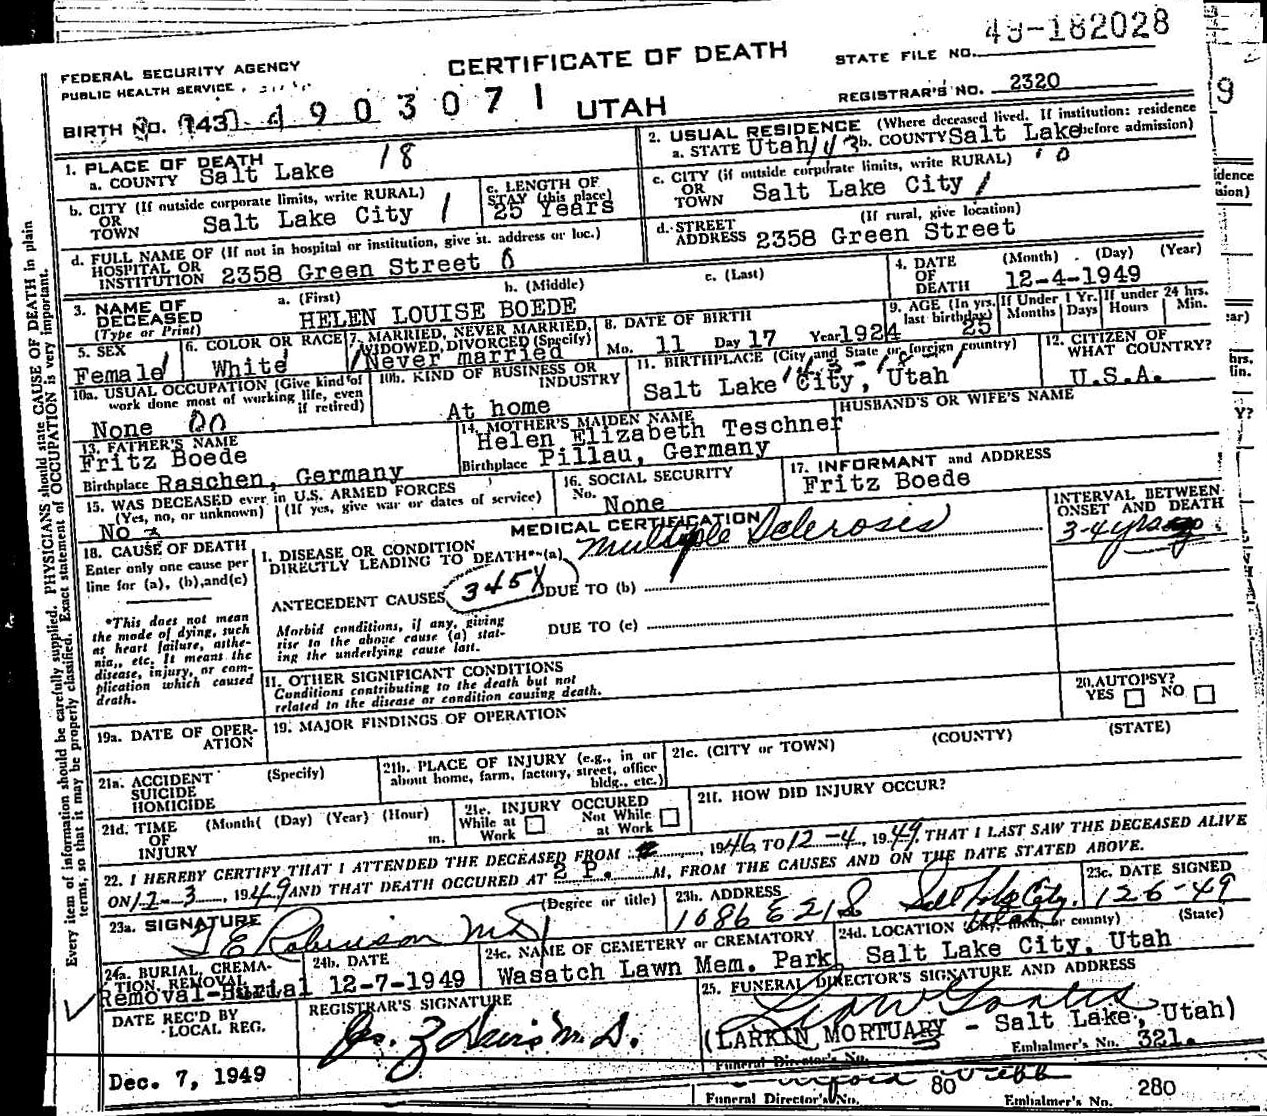 49-182028
CERTIFICATE OF DEATH
STATE FILE NO.
FEDERAL SECURITY AGENCY
PUBLIC HEALTH SERVICE
REGISTRAR'S NO. 2320
BIRTH NO. 143 4903071 UTAH
1. PLACE OF DEATH 18
a. COUNTY Salt Lake
2. USUAL RESIDENCE (Where deceased lived. If institution: residence before admission)
a. STATE Utah b. COUNTY Salt Lake
b. CITY (If outside corporate limits, write RURAL)
OR TOWN Salt Lake City 1
c. LENGTH OF STAY (this place)
25 Years
c. CITY (if outside corporate limits, write RURAL)
OR TOWN Salt Lake City 1
d. FULL NAME OF (If not in hospital or institution, give st. address or loc.)
HOSPITAL OR INSTITUTION 2358 Green Street
d. STREET ADDRESS (If rural, give location)
2358 Green Street
3. NAME OF DECEASED (Type or Print)
a. (First) b. (Middle) c. (Last)
HELEN LOUISE BOEDE
4. DATE OF DEATH (Month) (Day) (Year)
12-4-1949
5. SEX
Female
6. COLOR OR RACE
White
7. MARRIED, NEVER MARRIED, WIDOWED, DIVORCED (Specify)
Never married
8. DATE OF BIRTH
Mo. 11 Day 17 Year 1924
9. AGE (In yrs. last birthday) 25
If Under 1 Yr. Months Days
If under 24 hrs. Hours Min.
10a. USUAL OCCUPATION (Give kind of work done most of working life, even if retired)
None
10b. KIND OF BUSINESS OR INDUSTRY
At home
11. BIRTHPLACE (City and State or foreign country)
Salt Lake City, Utah
12. CITIZEN OF WHAT COUNTRY?
U.S.A.
13. FATHER'S NAME
Fritz Boede
Birthplace Raschen, Germany
14. MOTHER'S MAIDEN NAME
Helen Elizabeth Teschner
Birthplace Pillau, Germany
HUSBAND'S OR WIFE'S NAME
15. WAS DECEASED ever in U.S. ARMED FORCES
(Yes, no, or unknown) (If yes, give war or dates of service)
No
16. SOCIAL SECURITY No.
None
17. INFORMANT and ADDRESS
Fritz Boede
MEDICAL CERTIFICATION
INTERVAL BETWEEN ONSET AND DEATH
18. CAUSE OF DEATH
Enter only one cause per line for (a), (b), and (c)
I. DISEASE OR CONDITION DIRECTLY LEADING TO DEATH*-(a) Multiple Sclerosis
3-4 yrs ago
ANTECEDENT CAUSES 345X DUE TO (b)
Morbid conditions, if any, giving rise to the above cause (a) stating the underlying cause last.
DUE TO (c)
*This does not mean the mode of dying, such as heart failure, asthenia, etc. It means the disease, injury, or complication which caused death.
11. OTHER SIGNIFICANT CONDITIONS
Conditions contributing to the death but not related to the disease or condition causing death.
20. AUTOPSY?
YES NO
19a. DATE OF OPERATION
19. MAJOR FINDINGS OF OPERATION
21a. ACCIDENT SUICIDE HOMICIDE (Specify)
21b. PLACE OF INJURY (e.g., in or about home, farm, factory, street, office bldg., etc.)
21c. (CITY or TOWN) (COUNTY) (STATE)
21d. TIME OF INJURY (Month) (Day) (Year) (Hour) m.
21e. INJURY OCCURED
While at Work Not While at Work
21f. HOW DID INJURY OCCUR?
22. I HEREBY CERTIFY THAT I ATTENDED THE DECEASED FROM , 1946 TO 12-4, 1949, THAT I LAST SAW THE DECEASED ALIVE
ON 12-3 1949 AND THAT DEATH OCCURED AT 2 P. M, FROM THE CAUSES AND ON THE DATE STATED ABOVE.
23a. SIGNATURE (Degree or title)
Robinson MD
23b. ADDRESS
1086 E 21 S Salt Lake City, Utah
23c. DATE SIGNED
12 6-49
24a. BURIAL, CREMATION, REMOVAL
Removal-Burial
24b. DATE
12-7-1949
24c. NAME OF CEMETERY or CREMATORY
Wasatch Lawn Mem. Park
24d. LOCATION (City, town, or county) (State)
Salt Lake City, Utah
DATE REC'D BY LOCAL REG.
Dec. 7, 1949
REGISTRAR'S SIGNATURE
25. FUNERAL DIRECTOR'S SIGNATURE AND ADDRESS
(LARKIN MORTUARY - Salt Lake, Utah)
Funeral Director's No.
Embalmer's No. 321.
80 280
Funeral Director's No. Embalmer's No.
Every item of information should be carefully supplied. PHYSICIANS should state CAUSE OF DEATH in plain
terms, so that it may be properly classified. Exact statement of OCCUPATION is very important.